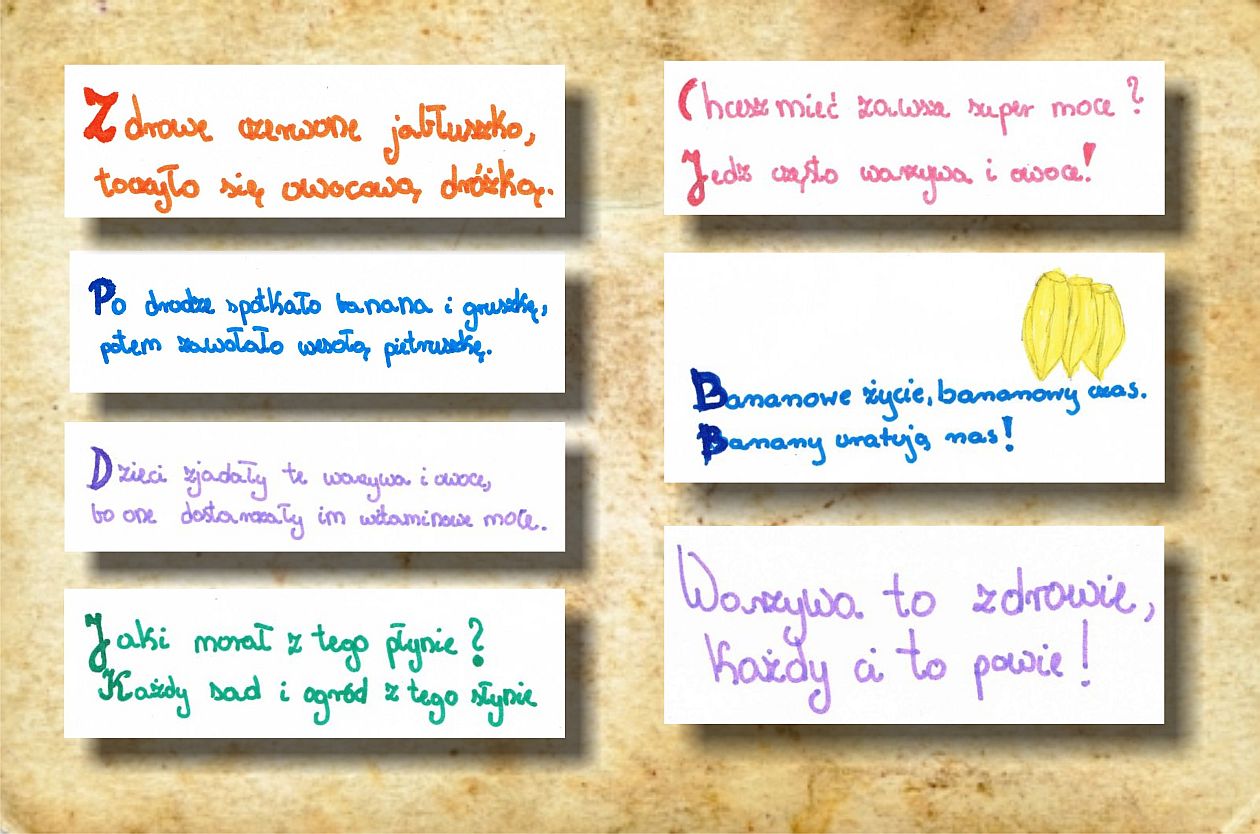 Zdrowe czerwone jabłuszko,
toczyło się owocową dróżką.
Po drodze spotkało banana i gruszkę,
potem zawołało wesołą pietruszkę.
Dzieci zjadały te warzywa i owoce,
bo one dostarczały im witaminowe moce.
Jaki morał z tego płynie?
Każdy sad i ogród z tego słynie
Chcesz mieć zawsze super moce?
Jedz często warzywa i owoce!
Bananowe życie, bananowy czas.
Banany uratują nas!
Warzywa to zdrowie,
każdy ci to powie!